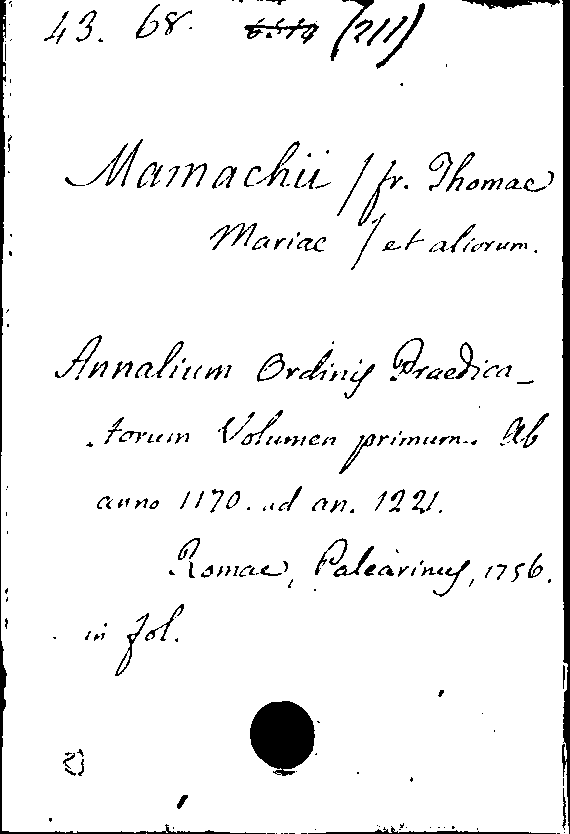 43. 68. (211)
Mamachii / fr. Thomae
Mariae / et aliorum.
Annalium Ordinis Praedica-
torum Volumen primum. Ab
anno 1170. ad an. 1221.
Romae, Palearinus, 1756.
in fol.